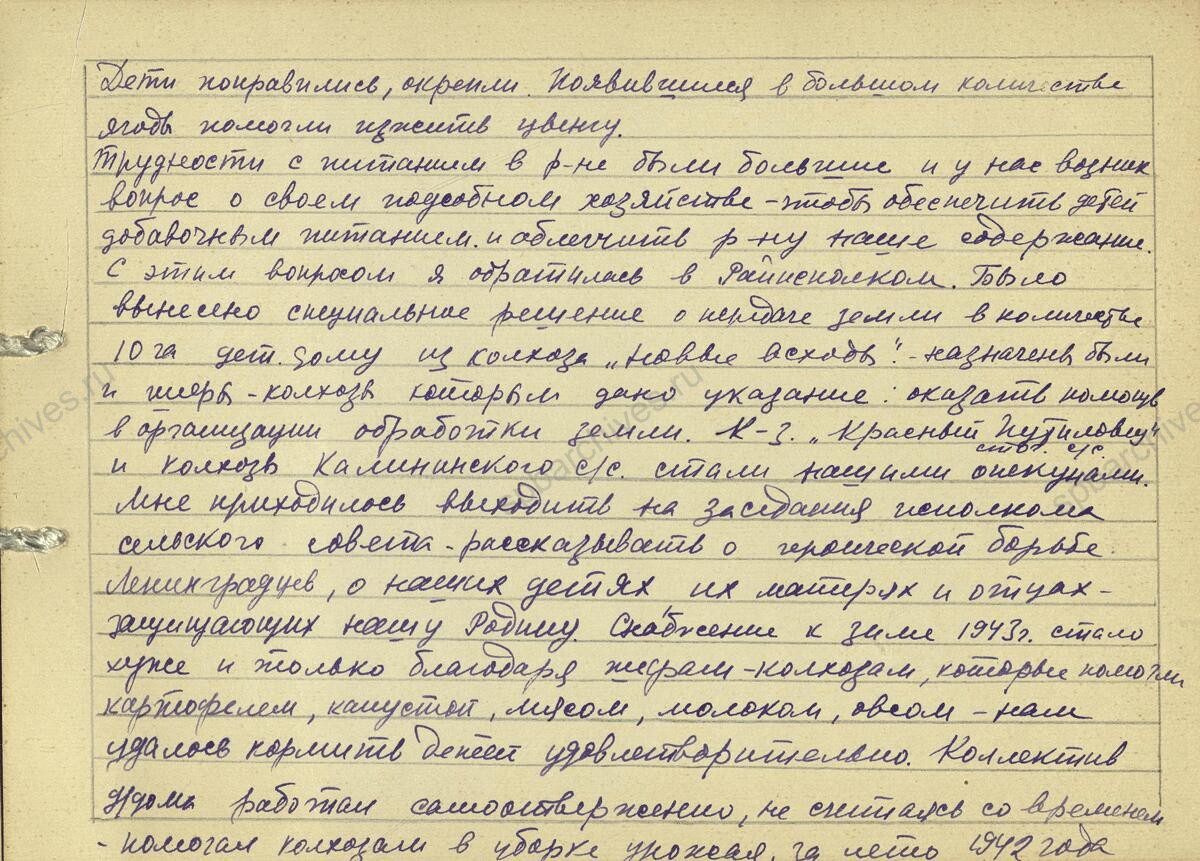 Дети поправились, окрепли. Появившиеся в большом количестве
ягоды помогли изжить цынгу.
Трудности с питанием в р-не были большие и у нас возник
вопрос о своем подсобном хозяйстве - чтобы обеспечить детей
добавочным питанием и облегчить р-ну наше содержание.
С этим вопросом я обратилась в Райисполком. Было
вынесено специальное решение о передаче земли в количестве
10 га дет. дому из колхоза „Новые всходы". - назначены были
и шефы - колхозы которым дано указание: оказать помощь
в организации обработки земли. К-з. „Красный Путиловец"
с/с.
и колхозы Калининского с/с. стали нашими опекунами.
Мне приходилось выходить на заседания исполкома
сельского совета - рассказывать о героической борьбе
Ленинградцев, о наших детях их матерях и отцах -
защищающих нашу Родину. Снабжение к зиме 1943 г. стало
хуже и только благодаря шефам - колхозам, которые помогли
картофелем, капустой, мясом, молоком, овсом - нам
удалось кормить детей удовлетворительно. Коллектив
д/дома работал самоотверженно, не считаясь со временем
- помогал колхозам в уборке урожая, за лето 1942 года
spbarchives.ru